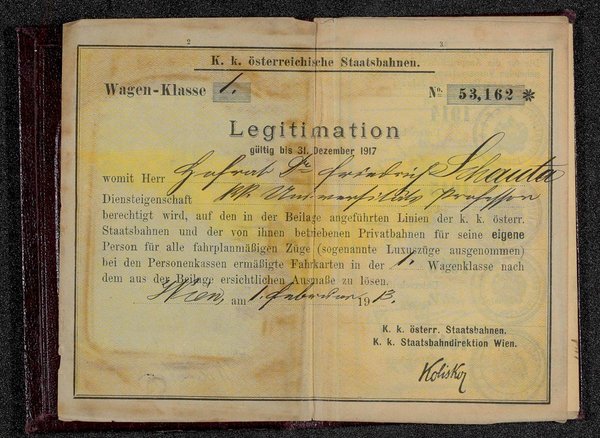 2
3
K. k. österreichische Staatsbahnen.
Wagen-Klasse 1. No. 53,162 *
Legitimation
gültig bis 31. Dezember 1917
womit Herr Hofrat Dr. Friedrich Schauta
Diensteigenschaft k.k. Universitäts Professor
berechtigt wird, auf den in der Beilage angeführten Linien der k. k. österr.
Staatsbahnen und der von ihnen betriebenen Privatbahnen für seine eigene
Person für alle fahrplanmäßigen Züge (sogenannte Luxuszüge ausgenommen)
bei den Personenkassen ermäßigte Fahrkarten in der 1. Wagenklasse nach
dem aus der Beilage ersichtlichen Ausmaße zu lösen.
Wien, am 1. Februar 1913.
K. k. österr. Staatsbahnen.
K. k. Staatsbahndirektion Wien.
Kolisko